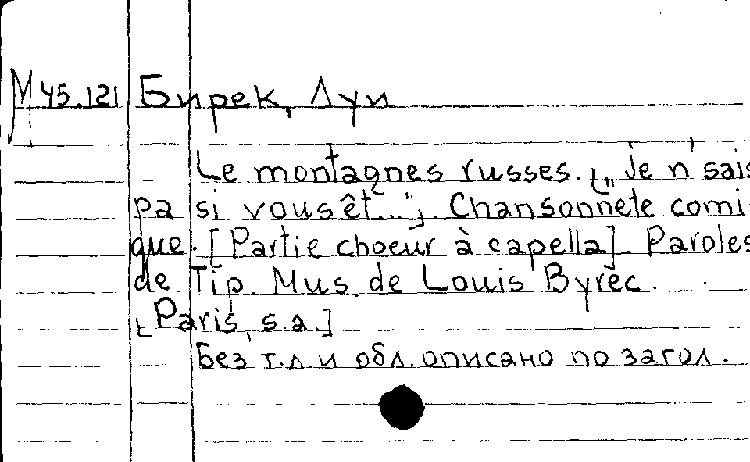 М 45.121 Бирек, Луи
Le montagnes russes. [„Je n'sais
pa si vous êt...”] Chansonnete comi
que. [Partie choeur à capella] Paroles
de Tip. Mus. de Louis Byrec.
[Paris, s.a.]
Без т.л и обл. описано по загол.